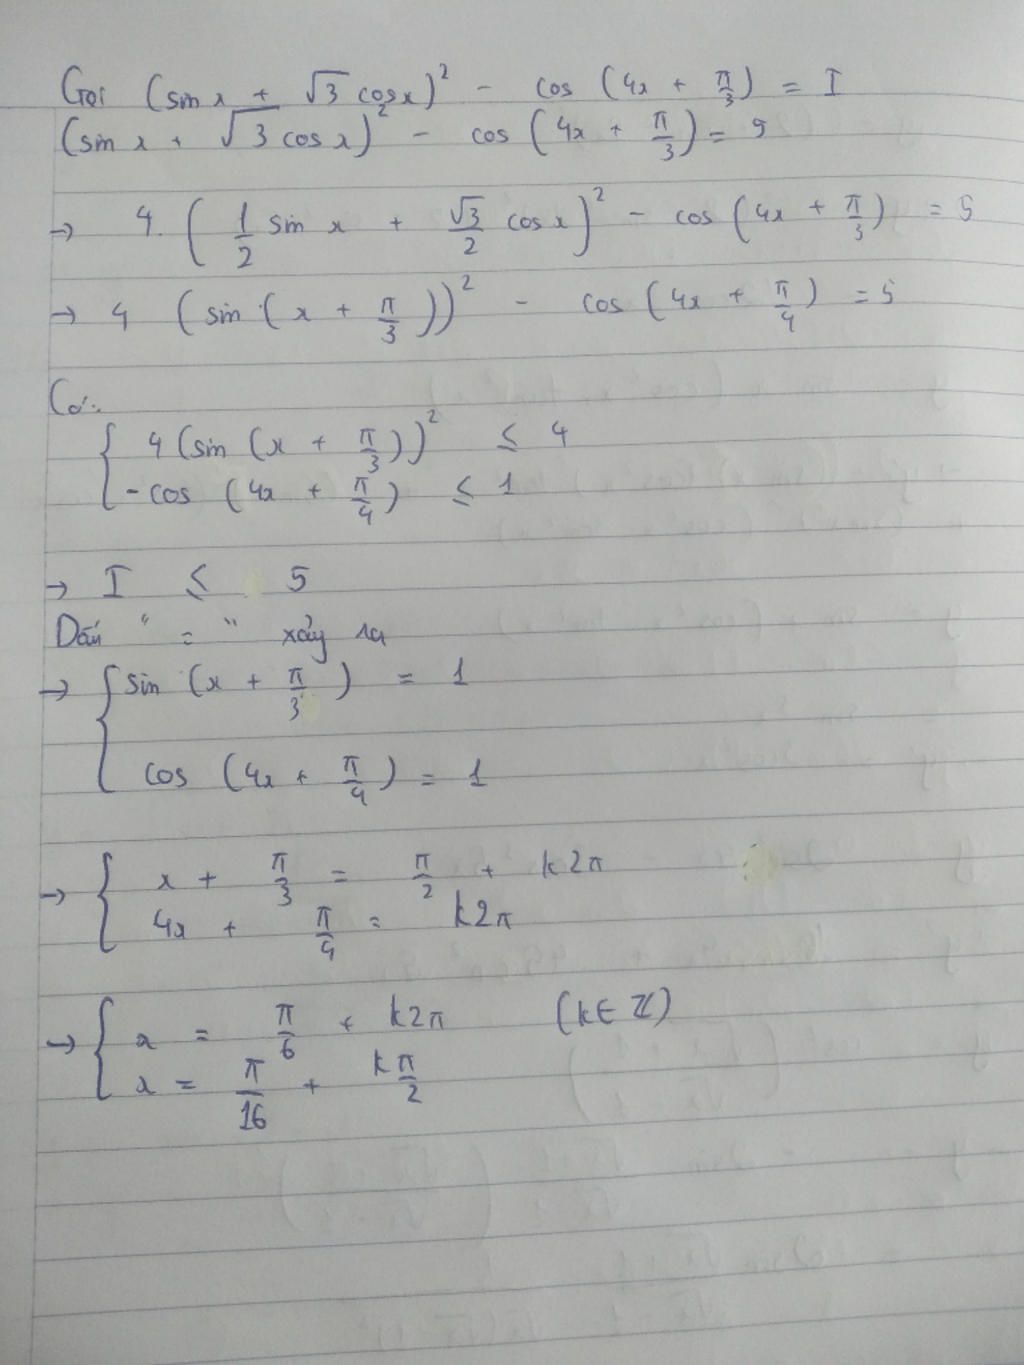 Gọi (sin x + √3 cosx)² - cos (4x + π/3) = I
(sin x + √3 cos x)² - cos (4x + π/3) = 5
→ 4. (1/2 sin x + √3/2 cosx)² - cos (4x + π/3) = 5
→ 4 (sin (x + π/3))² - cos (4x + π/4) = 5
Có:
{ 4 (sin (x + π/3))² ≤ 4
-cos (4x + π/4) ≤ 1
→ I ≤ 5
Dấu " = " xảy ra
→ { sin (x + π/3) = 1
cos (4x + π/4) = 1
→ { x + π/3 = π/2 + k2π
4x + π/4 = k2π
→ { x = π/6 + k2π (k ∈ Z)
x = π/16 + kπ/2